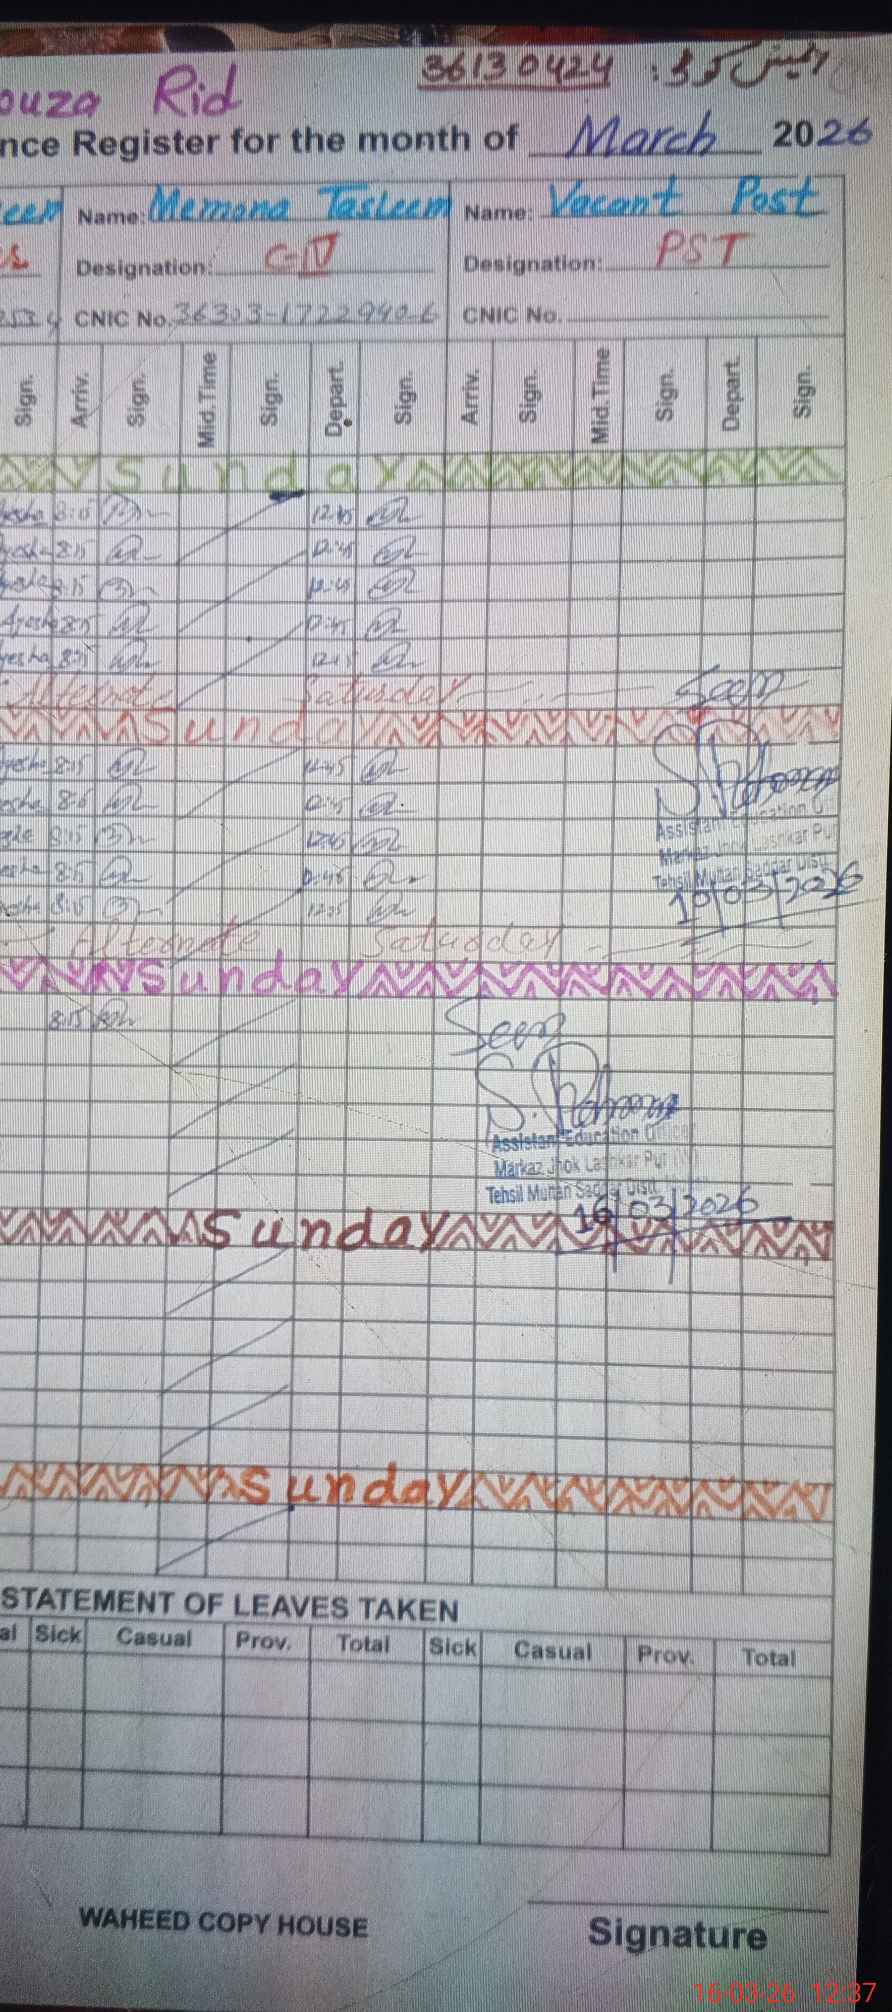 ouza Rid
36130424
nce Register for the month of March 2026
eem Name: Memona Tasleem Name: Vacant Post
s Designation: C-IV Designation: PST
CNIC No. 36303-1722940-6 CNIC No.
Sign. Arriv. Sign. Mid. Time Sign. Depart. Sign. Arriv. Sign. Mid. Time Sign. Depart. Sign.
Sunday
8:15 12:45
8:15 12:45
8:15 12:45
Ayesha 8:15 12:45
8:15
Alternate Saturday Seen
Sunday
8:15 12:45
12:45
8:15 12:45
8:15 12:45
8:15
Assistant Education
Markaz Jhok Lashkar Pur
Tehsil Multan Saddar Distt.
10/03/2026
Alternate Saturday
Sunday
8:15
Seen
Assistant Education Officer
Markaz Jhok Lashkar Pur (W)
Tehsil Multan Saddar Distt.
16/03/2026
Sunday
Sunday
STATEMENT OF LEAVES TAKEN
al Sick Casual Prov. Total Sick Casual Prov. Total
WAHEED COPY HOUSE
Signature
16-03-26 12:37